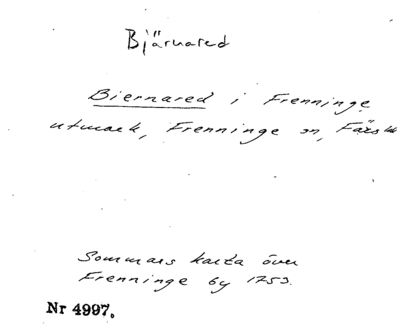 Bjärnared
Biernared i Frenninge
utmark, Frenninge sn, Färs hd
Sommars karta över
Frenninge by 1753.
Nr 4997.